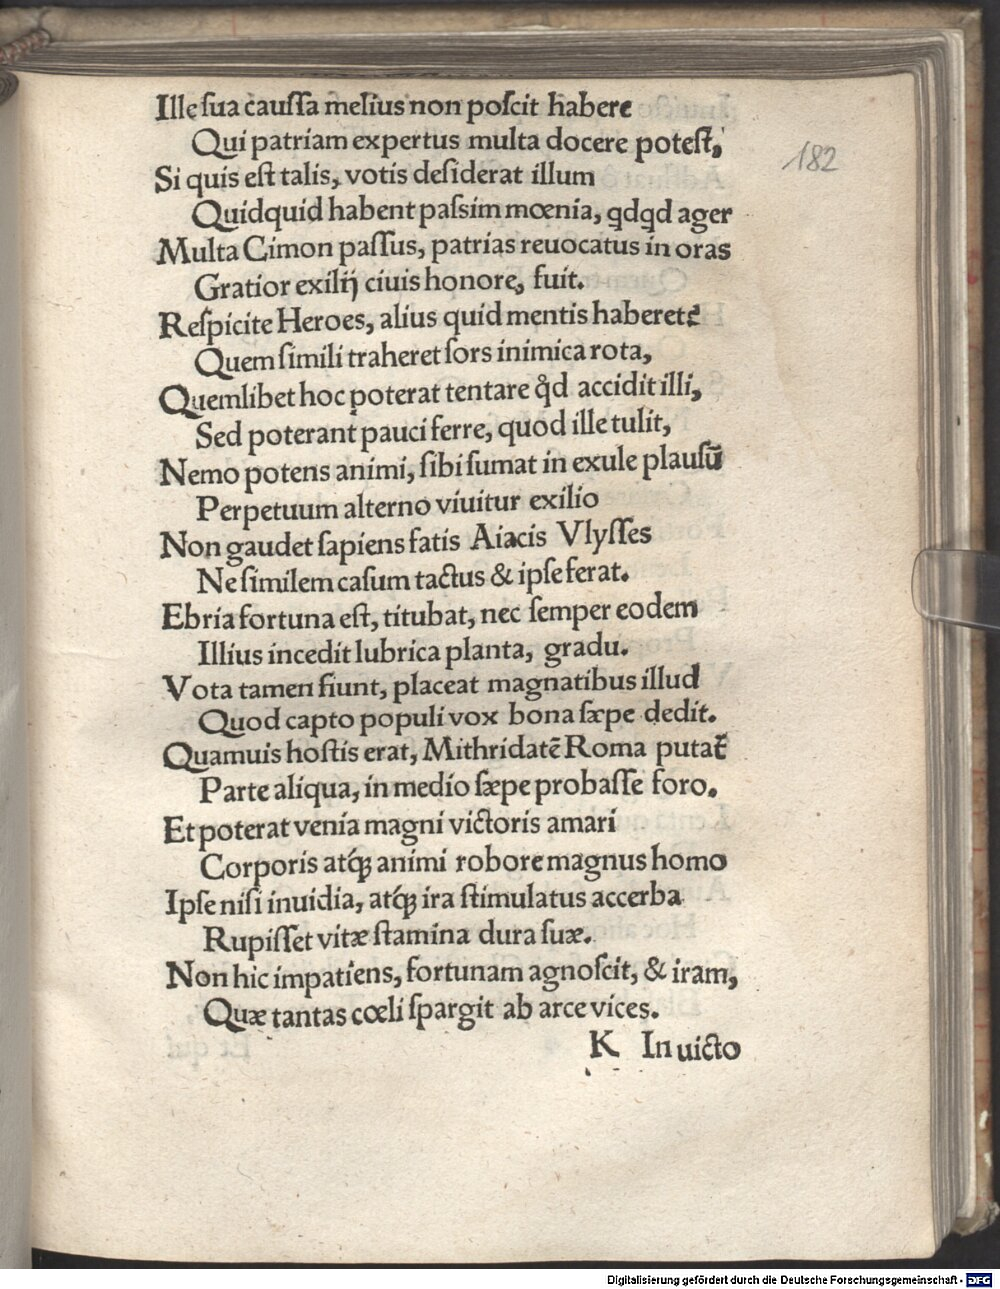 Ille ſua cauſſa melius non poſcit habere
Qui patriam expertus multa docere poteſt,
Si quis eſt talis, votis deſiderat illum
Quidquid habent paſsim mœnia, qdqd ager
Multa Cimon paſſus, patrias reuocatus in oras
Gratior exilij ciuis honore, fuit.
Reſpicite Heroes, alius quid mentis haberet?
Quem ſimili traheret ſors inimica rota,
Quemlibet hoc poterat tentare qd accidit illi,
Sed poterant pauci ferre, quod ille tulit,
Nemo potens animi, ſibi ſumat in exule plauſū
Perpetuum alterno viuitur exilio
Non gaudet ſapiens fatis Aiacis Vlyſſes
Ne ſimilem caſum tactus & ipſe ferat.
Ebria fortuna eſt, titubat, nec ſemper eodem
Illius incedit lubrica planta, gradu.
Vota tamen fiunt, placeat magnatibus illud
Quod capto populi vox bona ſæpe dedit.
Quamuis hoſtis erat, Mithridatē Roma putat̄
Parte aliqua, in medio ſæpe probaſſe foro.
Et poterat venia magni victoris amari
Corporis atq; animi robore magnus homo
Ipſe niſi inuidia, atq; ira ſtimulatus accerba
Rupiſſet vitæ ſtamina dura ſuæ.
Non hic impatiens, fortunam agnoſcit, & iram,
Quæ tantas cœli ſpargit ab arce vices.
K In uicto
182
Digitalisierung gefördert durch die Deutsche Forschungsgemeinschaft - DFG